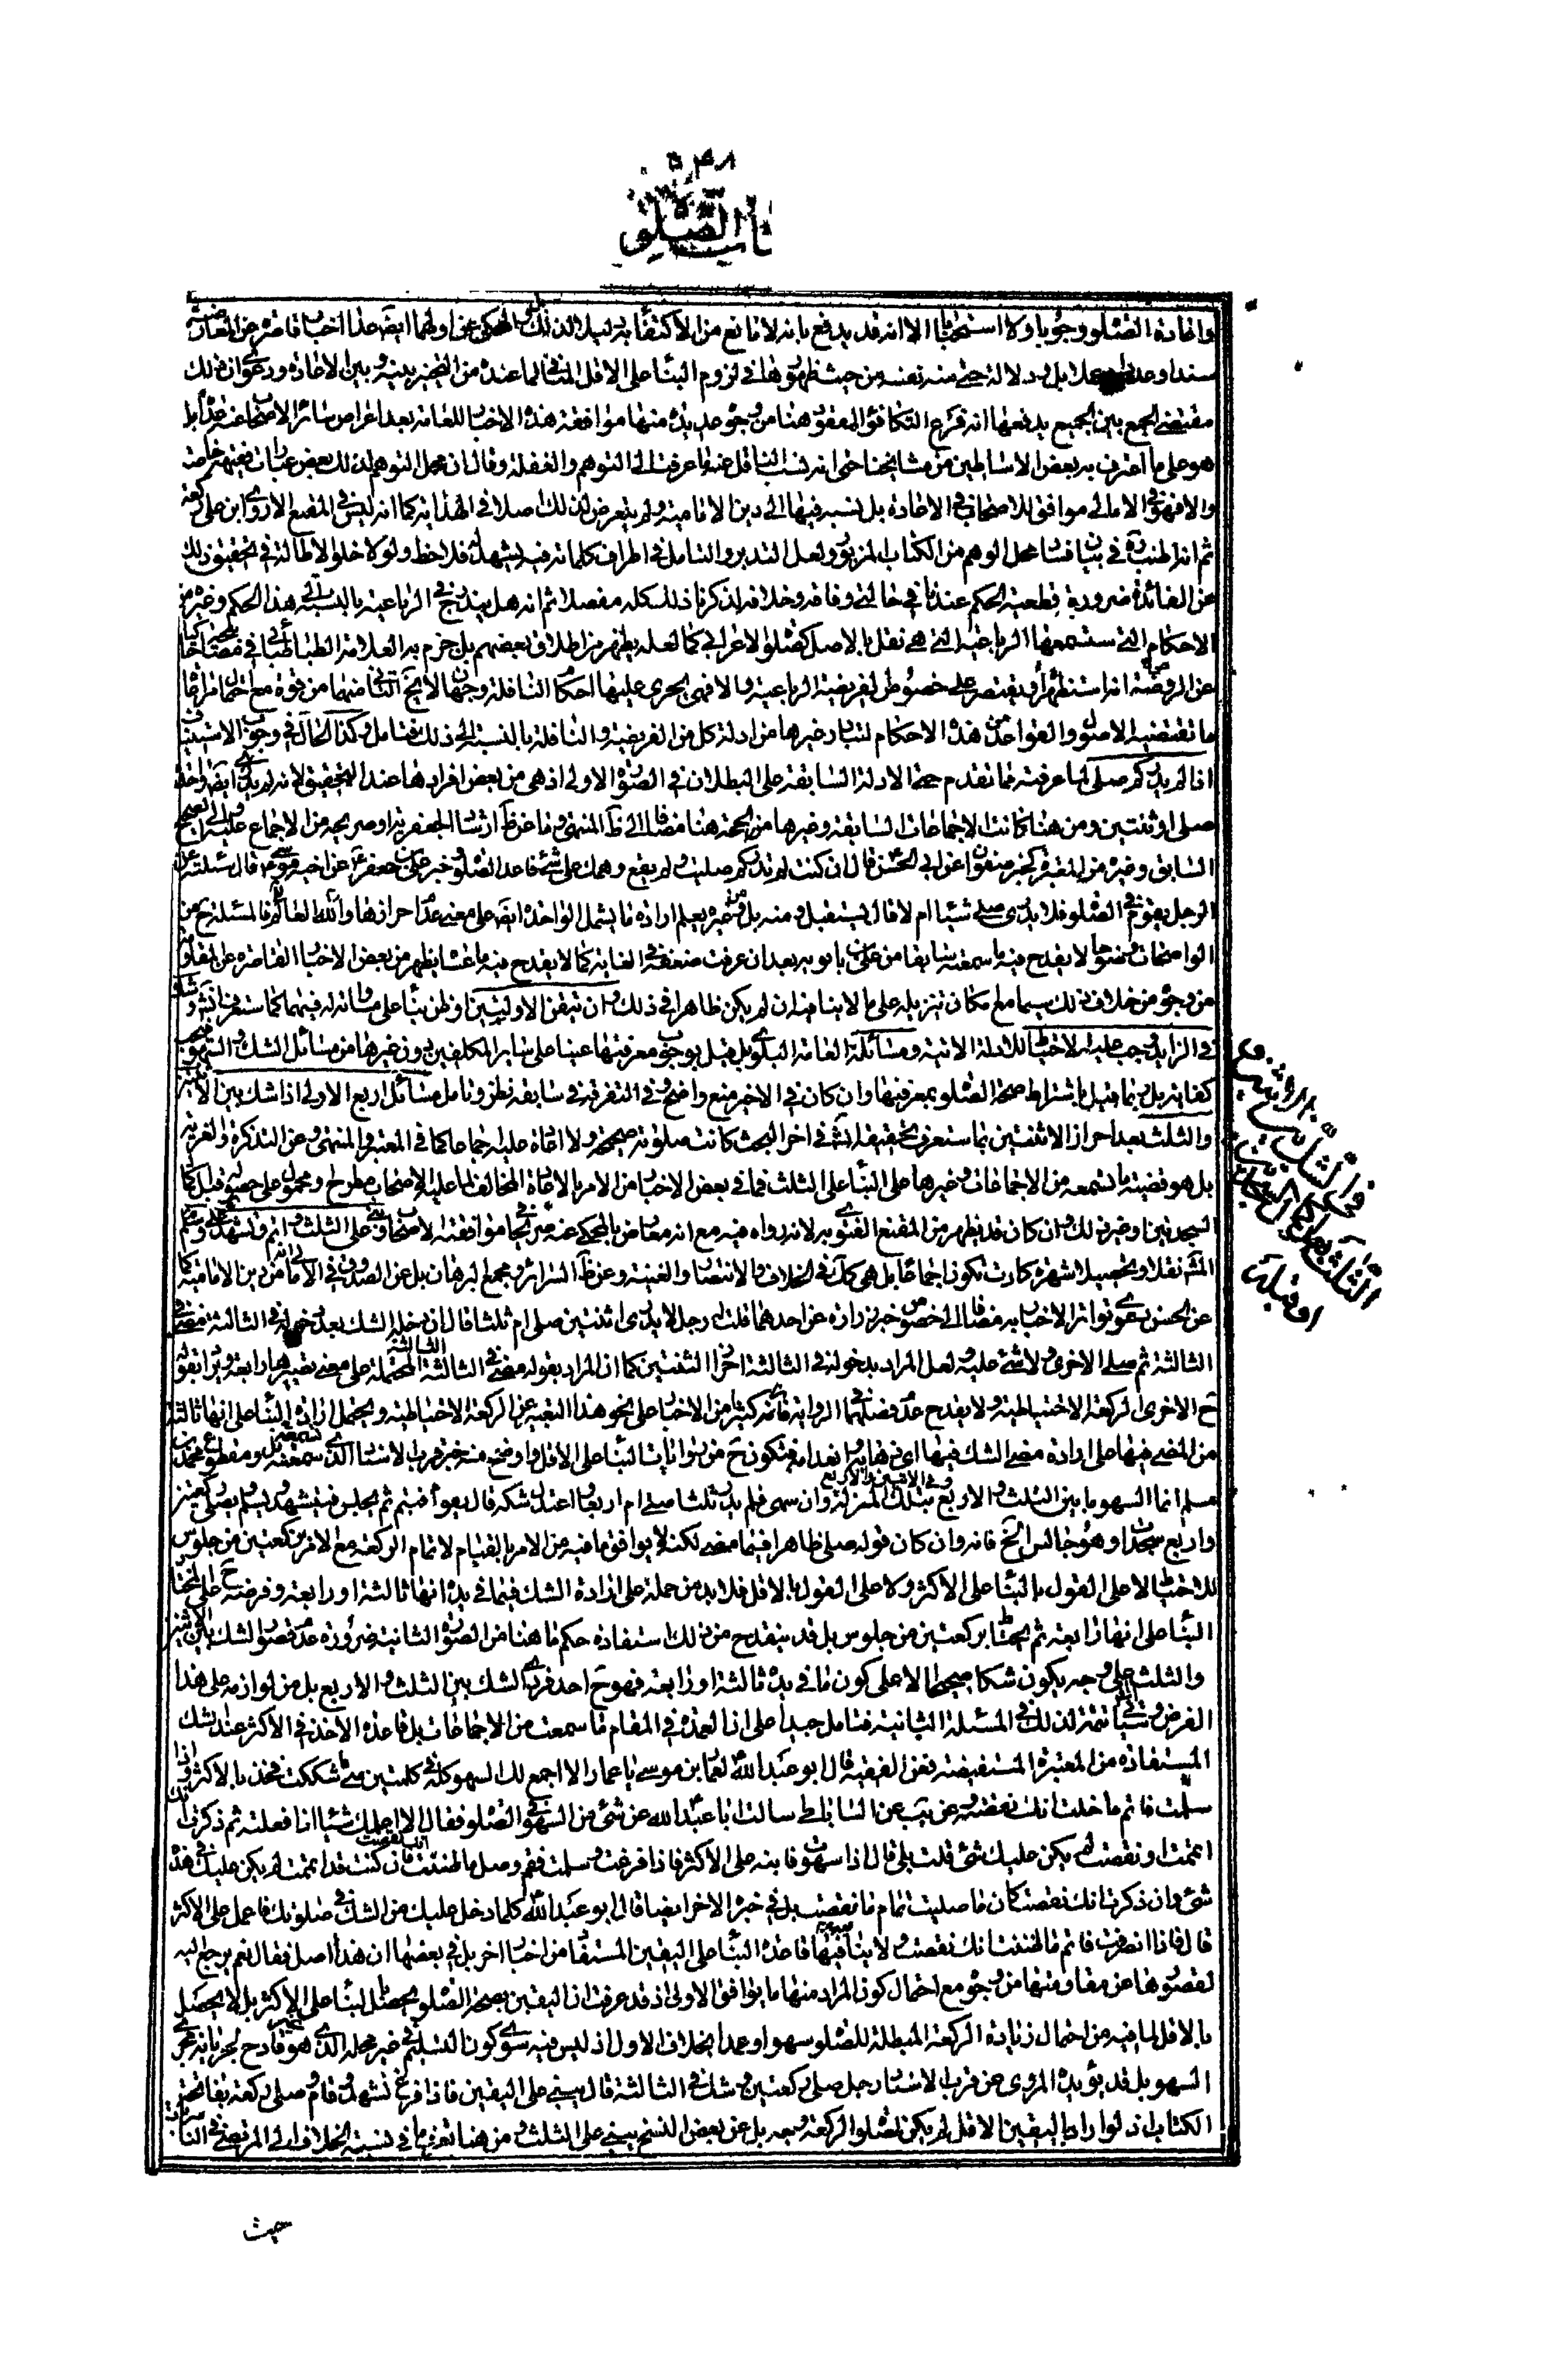 ٥٣٨
كتاب الصلوة
واعادة الصلوة وجوبا ولا استحبابا الا انه قد يدفع بانه لا مانع من الاكتفاء به لدليل لذلك المحكى عن اولهما ايض هذا اخبار قاصرة عن المعارضة
سندا وعددا وعملا بل ودلالة حتى منه نفسه من حيث ظهورها في لزوم البناء على الاقل المنافي لما عنده من التخيير بينه وبين الاعادة ودعوى ان ذلك
مقتضى الجمع بين الجميع يدفعها انه فرع التكافؤ المفقود هنا من وجوه عديدة منها موافقة هذه الاخبار للعامة بعد اعراض سائر الاصحاب عنه
هو على ما اعترف به بعض الاساطين من مشايخنا حتى انه نسب الناقل عنه ما عرفت الى التوهم والغفلة وقال ان محل التوهم لذلك بعض عبارات فقيهه خاصة
والا فهو في الامالي موافق للاصحاب في الاعادة بل نسبه فيها الى دين الامامية ولم يتعرض لذلك اصلا في الهداية كما انه ليس في المقنع الا روى ابن على ركعة
ثم انه اطنب في بيان فساد محل الوهم من الكتاب المزبور ولعل التدبر والتامل في اطراف كلماته فيه يشهد له فلاحظ ولولا خلو الاطالة في تحقيق ذلك
عن الفائدة ضرورة قطعية الحكم عندنا في حالتي وفاقه وخلافه لذكرنا ذلك كله مفصلا ثم انه هل يندرج في الرباعية بالنسبة الى هذا الحكم وغيره من
الاحكام التي ستسمعها الرباعية التي هي نفل بالاصل كصلوة الاعرابي كما لعله يظهر من اطلاق بعضهم بل جزم به العلامة الطباطبائي في مصابيحه حاكيا
عن الروضة انه استظهره او يقتصر على خصوص الفريضة الرباعية والا فهي يجرى عليها احكام النافلة وجهان لا يخ الثاني منهما من قوة مع احتمال مراعاة
ما تقتضيه الاصول والقواعد من هذه الاحكام لتبادر غيرها من ادلة كل من الفريضة والنافلة بالنسبة الى ذلك فتامل وكذا الحال في وجوب الاستيناف
اذا لم يدر كم صلى لما عرفته فيما تقدم من الادلة السابقة على البطلان في الصورة الاولى اذ هى من بعض افرادها عند التحقيق لانه لم يدر ايض واحدة
صلى او ثنتين ومن هنا كانت الاجماعات السابقة وغيرها من الحجة هنا مضافا الى ظ المنتهى وما عن ظ ارشاد الجعفرية او صريحه من الاجماع عليه والى الصحيح
السابق وغيره من المعتبرة كخبر صفوان عن ابي الحسن قال ان كنت لم تدر كم صليت ولم يقع وهمك على شئ فاعد الصلوة وخبر على بن جعفر عن اخيه موسى قال سئلته عن
الرجل يقوم في الصلوة فلا يدرى صلى شيئا ام لا قال يستقبل ومنه بل ومن غيره يعلم ارادة ما يشمل الواحدة ايض على معنى عدم احرازها والله العالم فالمسئلة ح من
الواضحات ونحوها لا يقدح فيه ما سمعته سابقا من على بن بابويه بعد ان عرفت ضعفه في الغاية كما لا يقدح فيه ما عساه يظهر من بعض الاخبار القاصرة عن المقاومة
من وجوه من خلاف ذلك سيما مع مكان تنزيله على ما لا ينافيه ان لم يكن ظاهرا في ذلك وان تيقن الاوليتين او ظن بناء على مساواته له فيهما كما ستعرفه انش وشك
في الزايد وجب عليه الاحتياط للادلة الاتية ومسائله العامة البلوى بل قيل بوجوب معرفتها عينا على ساير المكلفين دون غيرها من مسائل الشك والسهو فيجب
كفاية بل ربما قيل باشتراط صحة الصلوة بمعرفتها وان كان في الاخير منع واضح وفي التفرقة في سابقه نظر وتامل مسائل اربع الاولى اذا شك بين الاثنين
والثلث بعد احراز الاثنتين بما ستعرف تحقيقه انش في اخر البحث كانت صلوته صحيحة ولا اعادة عليه اجماعا كما في المعتبر والمنتهى وعن التذكرة والغرية
بل هو قضية ما تسمعه من الاجماعات وغيرها على البناء على الثلث فما في بعض الاخبار من الامر بالاعادة المخالف لما عليه الاصحاب مطروح او محمول على حصوله قبل اكمال
السجدتين او غير ذلك وان كان قد يظهر من المقنع الفتوى به لانه رواه فيه مع انه معارض بالمحكى عنه صريحا موافقة الاصحاب وبنى على الثلث واتم وتشهد وسلم على
المش نقلا وتحصيلا شهرة كادت تكون اجماعا بل هي كك في الخلاف والانتصار والغنية وعن ظ السرائر ومجمع البرهان بل عن الصدوق في الامالي انه من دين الامامية كما
عن الحسن دعوى تواتر الاخبار به مضافا الى خصوص خبر زرارة عن احدهما قلت له رجل لا يدرى اثنتين صلى ام ثلثا قال ان دخله الشك بعد دخوله في الثالثة مضى في
الثالثة ثم صلى الاخرى ولا شئ عليه لعل المراد بدخوله في الثالثة احراز الثنتين كما ان المراد بقوله مضى في الثالثة المحتملة على معنى تصييرها رابعة ويراد بقوله
ح الاخرى الركعة الاحتياطية ولا يقدح عدم فصلهما الرواية فانه كثيرا من الاخبار على نحو هذا التعبير عن الركعة الاحتياطية ويحتمل ارادة البناء على انها ثالثة
من المضى فيها على ارادة مضى الشك فيها اى ذهابه وانعدامه فتكون ح من روايات البناء على الاقل واوضح منه خبر قرب الاسناد الذى ستسمعه بل ومقطوع محمد بن
مسلم انما السهو ما بين الثلث والاربع وفي الاثنين والاربع بتلك المنزلة وان سهى فلم يدر ثلثا صلى ام اربعا واعتدل شكه قال يقوم فيتم ثم يجلس فيتشهد ويسلم ويصلى ركعتين
واربع سجدات وهو جالس الخ فانه وان كان قوله صلى ظاهرا فيما مضى لكنه لا يوافق ما فيه من الامر بالقيام لاتمام الركعة مع الامر بركعتين من جلوس
للاحتياط لا على القول بالبناء على الاكثر ولا على القول بالاقل فلا بد من حمله على ارادة الشك فيما في يده انها ثالثة او رابعة وفرضه ح على المختار
البناء على انها رابعة ثم الاحتياط بركعتين من جلوس بل قد ينقدح من ذلك استفادة حكم ما هنا من الصورة الثانية ضرورة عدم تصور الشك بين الاثنين
والثلث على وجه يكون شكا صحيحا الا على كون ما في يده ثالثة او رابعة فهو ح احد فردى الشك بين الثلث والاربع بل من لوازمه على هذا
الفرض وسياتي تتمة لذلك في المسئلة الثانية فتامل جيدا على ان العمدة في المقام ما سمعت من الاجماعات بل قاعدة الاخذ في الاكثر عند الشك
المستفادة من المعتبرة المستفيضة ففي الفقيه قال ابو عبد الله لعمار بن موسى يا عمار الا اجمع لك السهو كله في كلمتين متى ما شككت فخذ بالاكثر فاذا
سلمت فاتم ما ظننت انك نقصت وعن يب عن الساباطى سالت ابا عبد الله عن شئ من السهو في الصلوة فقال الا اعلمك شيئا اذا فعلته ثم ذكرت انك
اتممت او نقصت لم يكن عليك شئ قلت بلى قال اذا سهوت فابنه على الاكثر فاذا فرغت وسلمت فقم وصل ما ظننت انك نقصت فان كنت قد اتممت لم يكن عليك في هذه
شئ وان ذكرت انك نقصت كان ما صليت تمام ما نقصت بل في خبره الاخر ايضا قال ابو عبد الله كلما دخل عليك من الشك في صلوتك فاعمل على الاكثر
قال فاذا انصرفت فاتم ما ظننت انك نقصت ولا ينافيها قاعدة البناء على اليقين المستفاد من اخبار اخر بل في بعضها ان هذا اصل فقال نعم يرجع اليه
لقصورها عن مقاومتها من وجوه مع احتمال كون المراد منها ما يوافق الاولى اذ قد عرفت ان اليقين بصحة الصلوة يحصل لبناء على الاكثر بل لا يحصل
بالاقل لما فيه من احتمال زيادة الركعة المبطلة للصلوة سهوا وعمدا بخلاف الاول اذ ليس فيه سوى كون التسليم في غير محله الذى هو غير قادح لجريانه مجرى
السهو بل قد يؤيده المروى عن قرب الاسناد رجل صلى ركعتين وشك في الثالثة قال يبنى على اليقين فاذا فرغ تشهد وقام وصلى ركعة بفاتحة
الكتاب اذ لو اراد باليقين الاقل لم يكن لصلوة الركعة وجه بل عن بعض النسخ يبنى على الثلث ومن هنا تعرف ما في نسبة الخلاف الى المرتضى في الناصرية
حيث